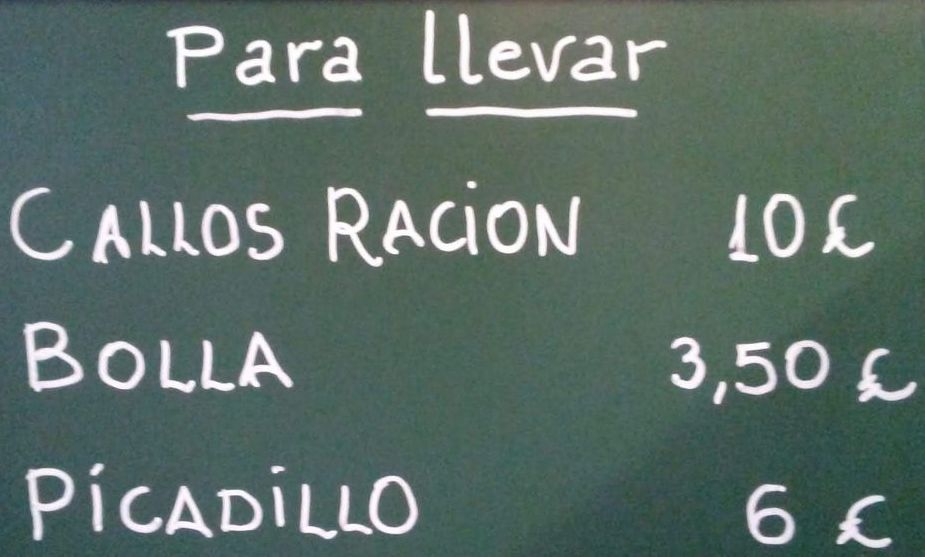 Para llevar
CALLOS RACION 10 £
BOLLA 3,50 £
PICADILLO 6 £